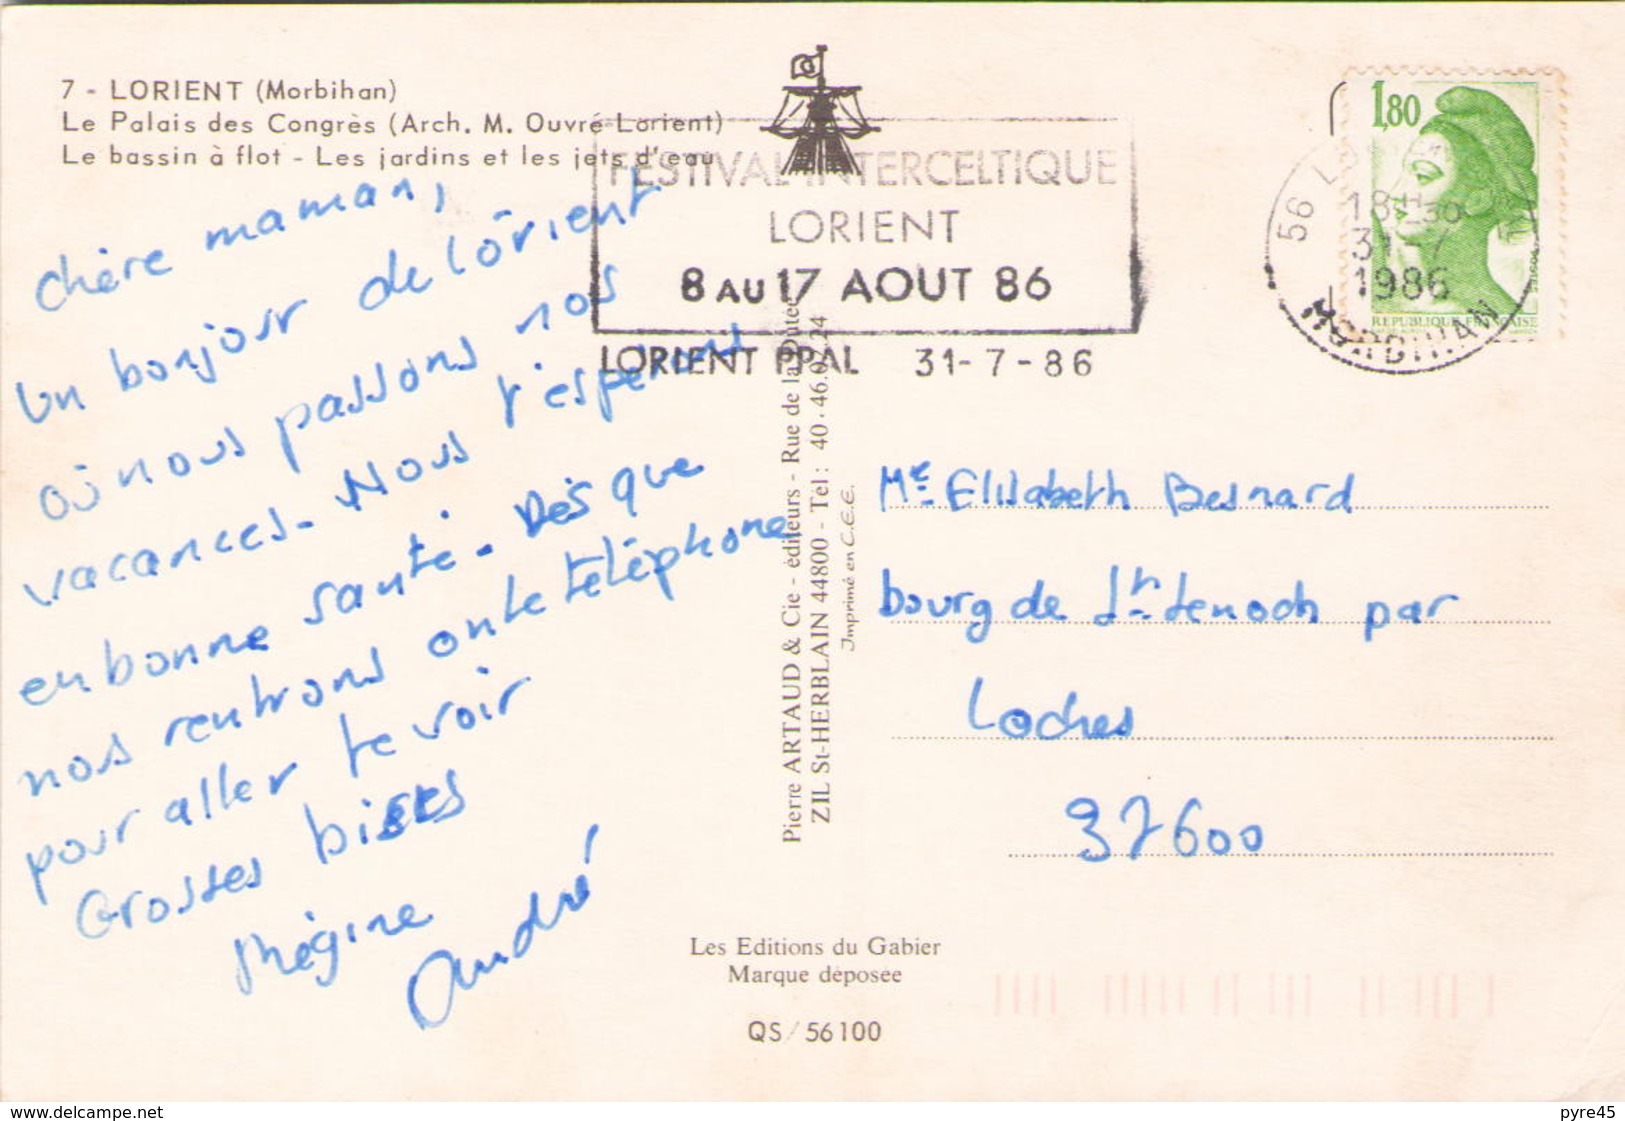 7 - LORIENT (Morbihan)
Le Palais des Congrès (Arch. M. Ouvré-Lorient)
Le bassin à flot - Les jardins et les jets d'eau
FESTIVAL INTERCELTIQUE
LORIENT
8 AU 17 AOUT 86
LORIENT PPAL 31-7-86
1,80
REPUBLIQUE FRANÇAISE
56
18H30
31-7
1986
MORBIHAN
chère maman,
un bonjour de lorient
où nous passons nos
vacances - Nous t'esperons
en bonne santé - Dès que
nos rentrons on te téléphone
pour aller te voir
Grosses bises
Régine
André
Pierre ARTAUD & Cie - éditeurs - Rue de la Dutée
ZIL St-HERBLAIN 44800 - Tél : 40.46.02.24
Imprimé en C.E.E.
Me Elisabeth Besnard
bourg de St. Senoch par
Loches
37600
Les Editions du Gabier
Marque déposée
QS/56100
www.delcampe.net
pyre45